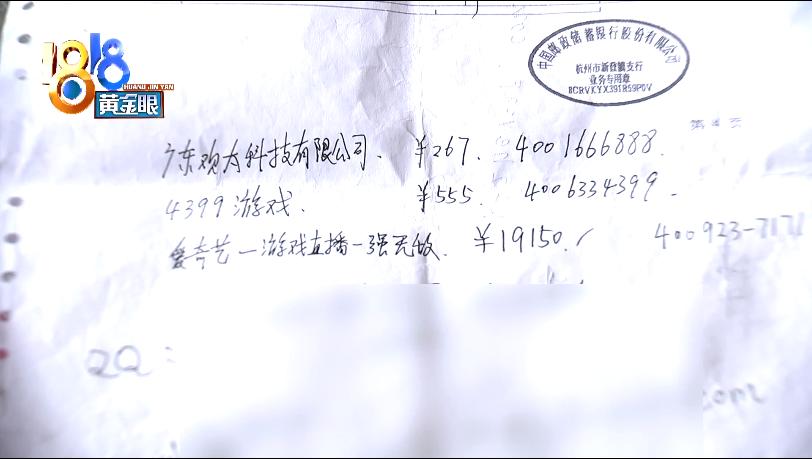 1818
HUANG JIN YAN
黄金眼
中国邮政储蓄银行股份有限公司
杭州市新登镇支行
业务专用章
第4页
广东欢太科技有限公司、 ¥267、 4001666888.
4399游戏、 ¥555、 4006334399
爱奇艺一游戏直播一强无敌、 ¥19150、 400923-7171
QQ:
.com